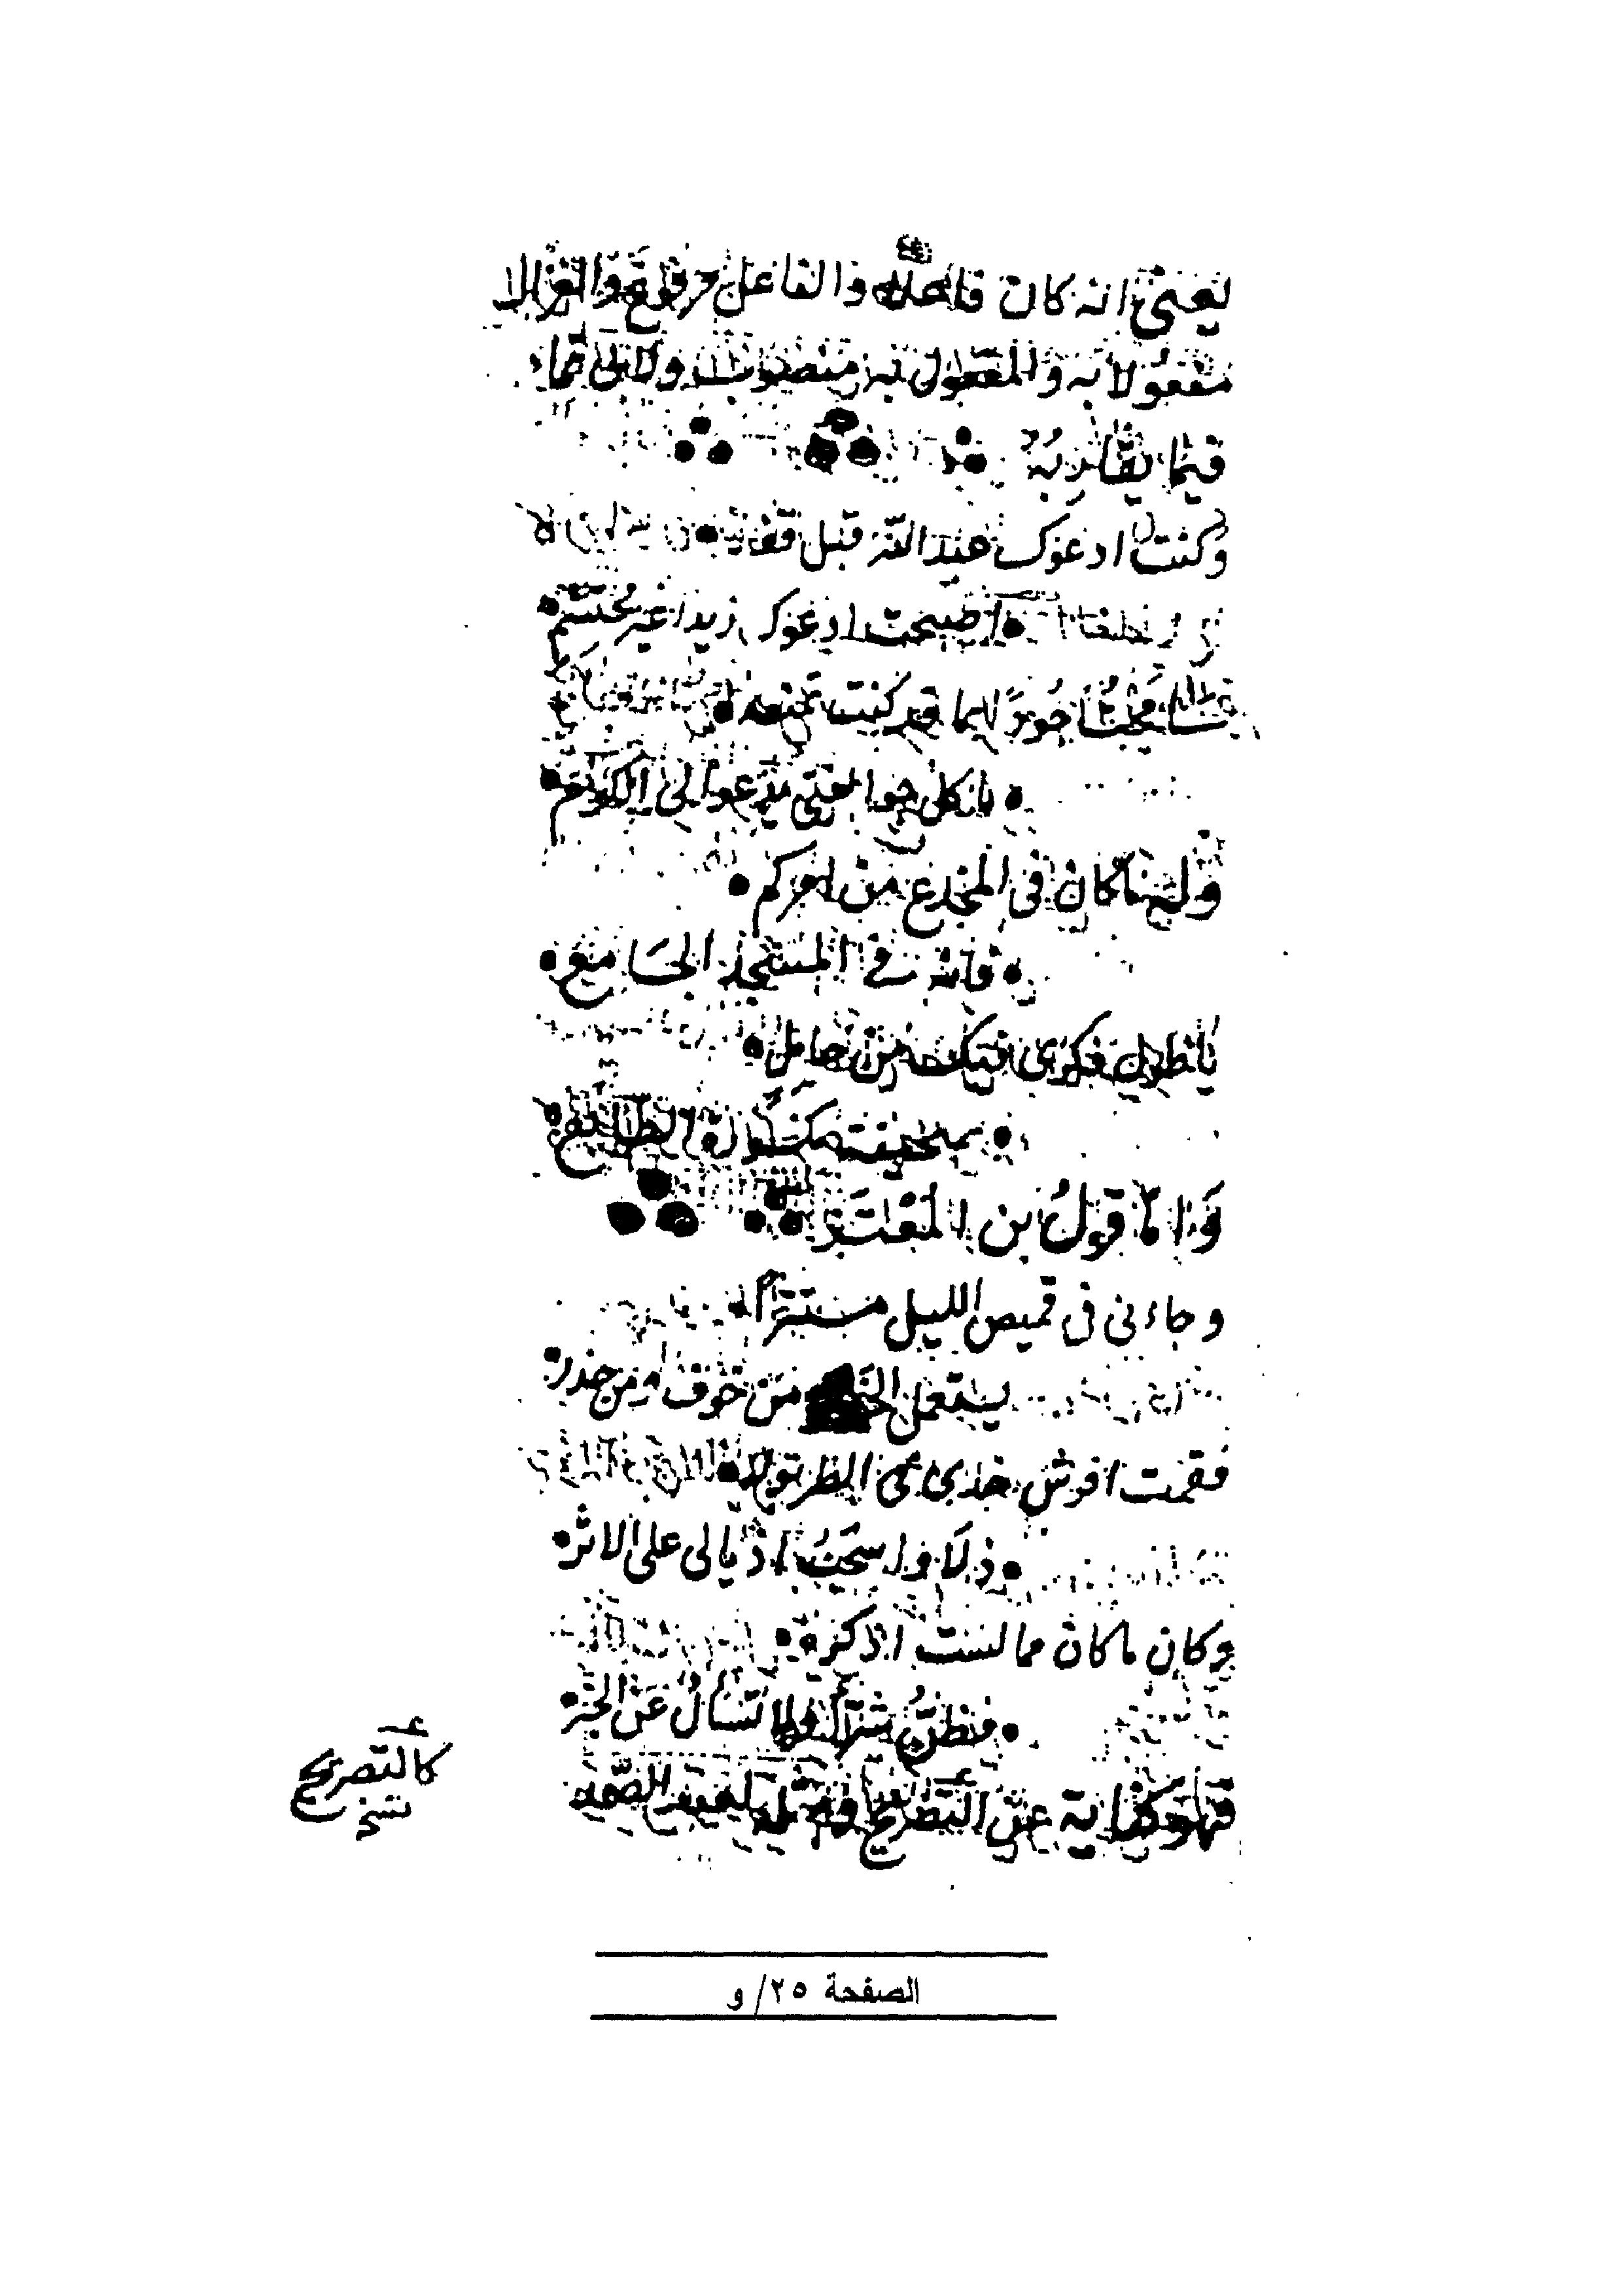 يعنى انه كان فاعله والفاعل مرفوع والغزال
مفعولا به والمفعول به منصوب ولابى تمام
فيما يقاربه
وكنت ادعوك عبد الله قبل فقد
اصبحت ادعوك زيدا غير محتشم
جودًا لما قد كنت تمنعه
بان كل جوا لفتى يدعو الى الكرم
كان فى المخدع من امركم
فانه فى المسجد الجامع
يا طول فكرى فيك من حامل
صحيفة مكسورة الطابع
واما قول بن المعتز
وجاءنى فى قميص الليل مستترا
يستعجل من خوف ومن حذر
فقمت افرش خدى فى الطريق له
ذلا واسحب اذيالى على الاثر
وكان ما كان مما لست اذكره
فظن شرا ولا تسأل عن الخبر
فهو كناية عن التصريح
كالتصريح
نسخ
الصفحة ٢٥/ و